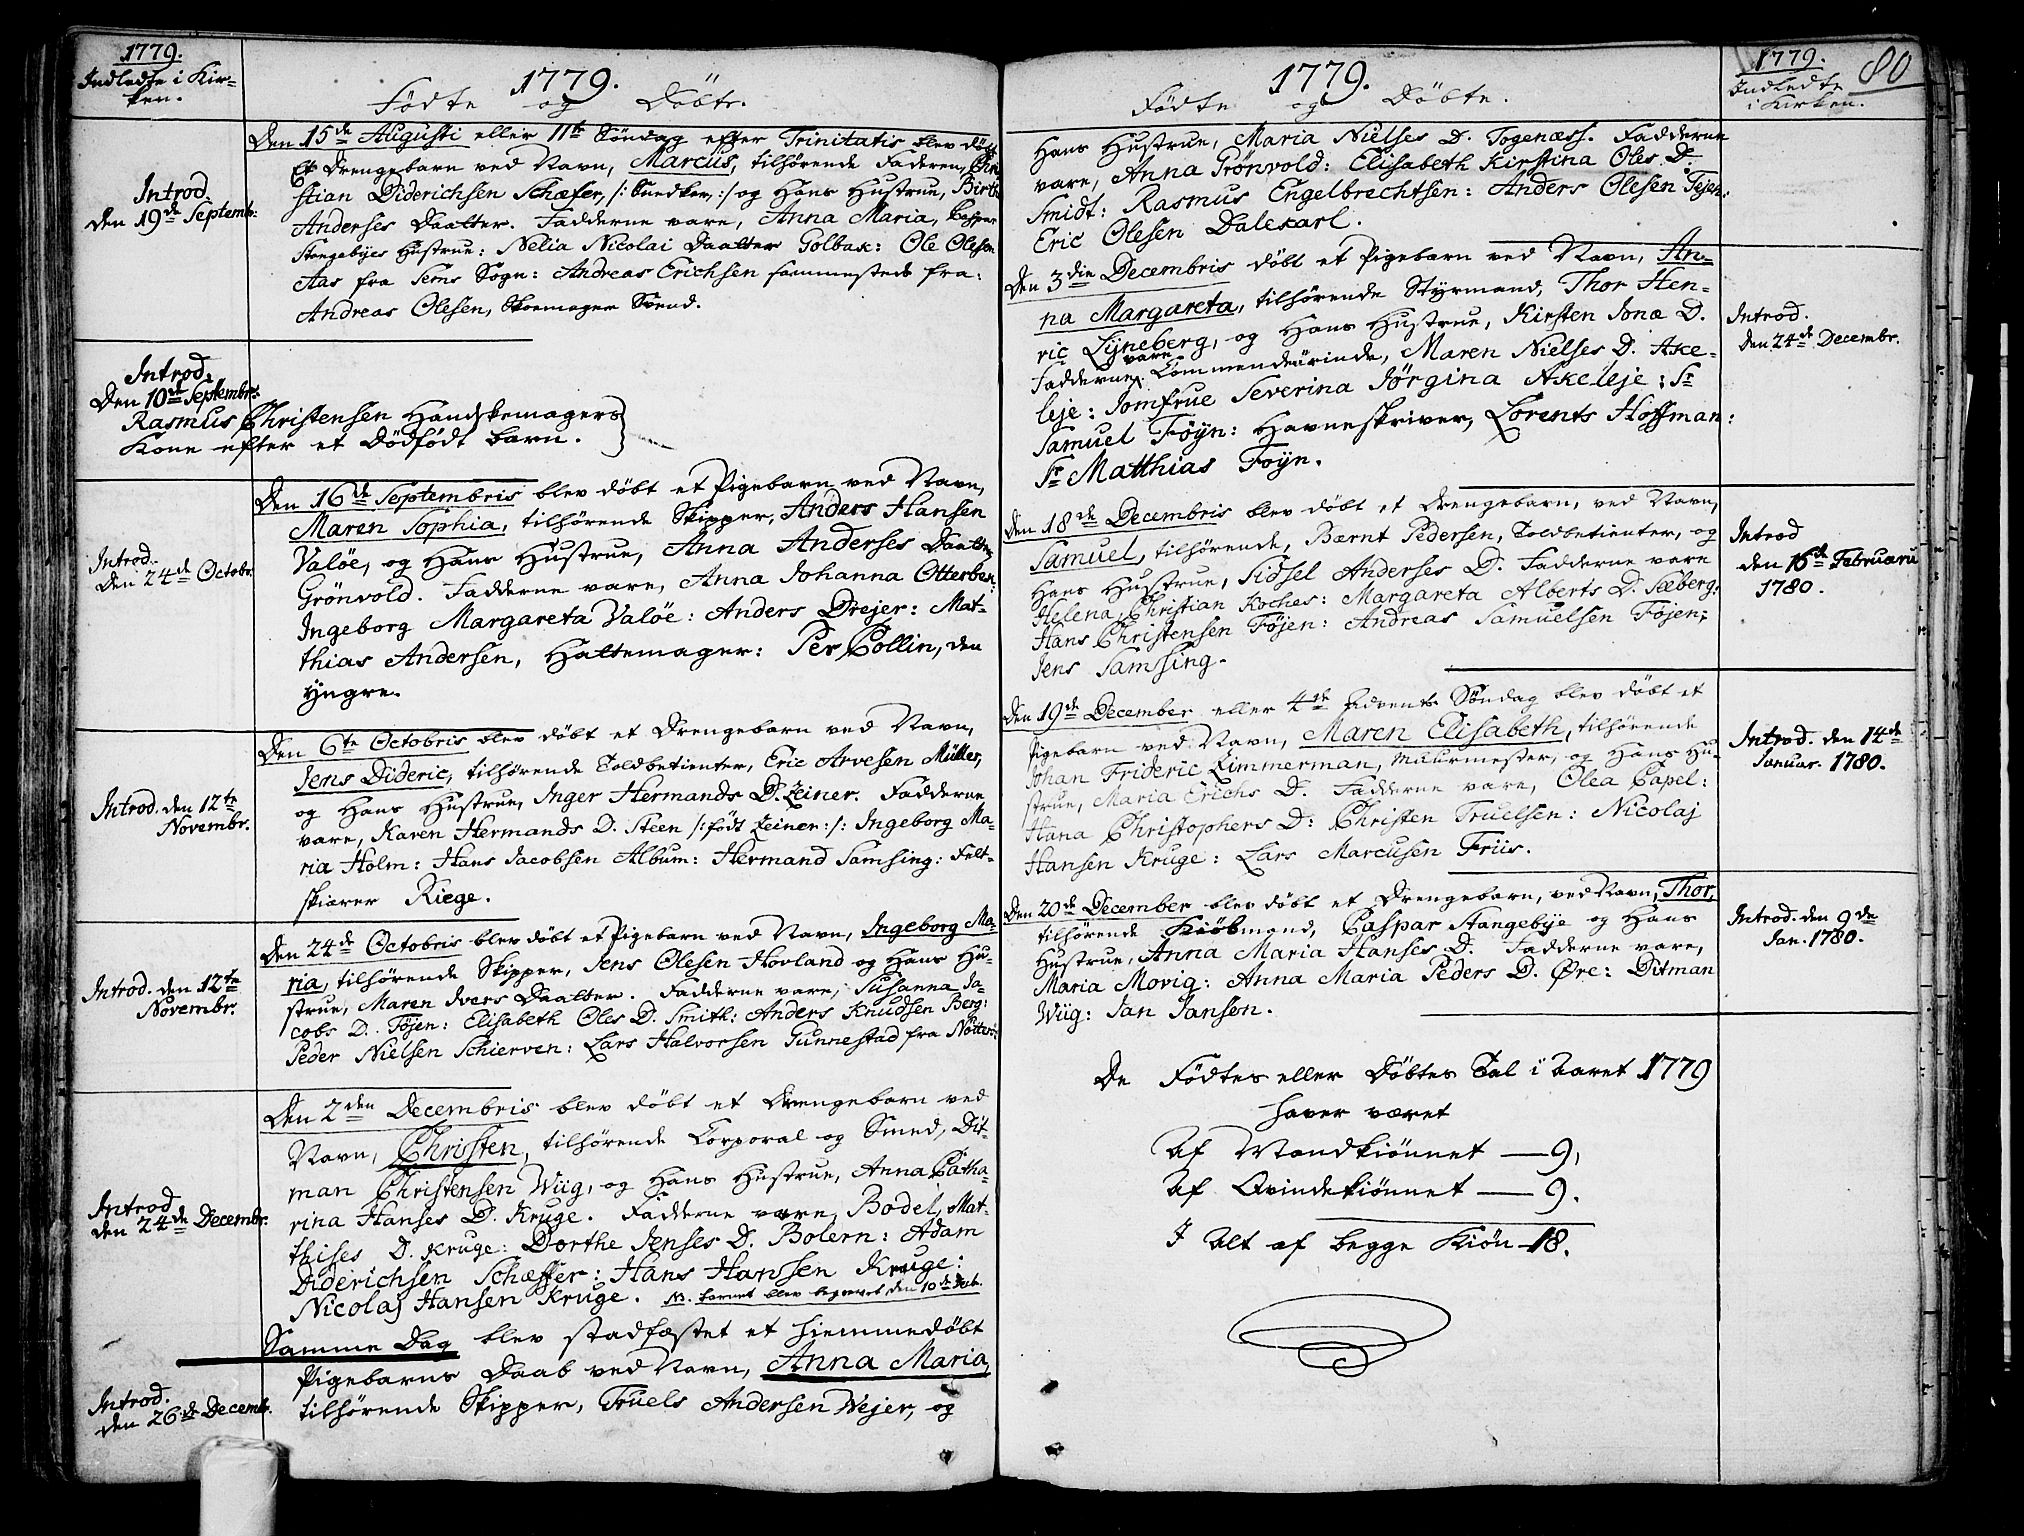 1779.
Indledte i Kir-
ken.
1779.
Fødte og Døbte.
Den 15de Augusti eller 11te Søndag efter Trinitatis blev døbt
Et Drengebarn ved Navn, Marcus, tilhørende Faderen, Chri-
stian Diderichsen Schæfer, /: Snedker, :/ og Hans Hustrue, Birthe
Anderses Daatter. Fadderne vare, Anna Maria, Casper
Stangebyes Hustrue: Nelia Nicolai Daatter Golbak: Ole Olesen
Aas fra Sems Sogn: Andreas Erichsen sammesteds fra:
Andreas Olesen, Skoemager Svend.
Introd.
den 19de Septemb:
Introd.
Den 10de Septembr:
Rasmus Christensen Handskemagers
Kone efter et Dødfødt barn.
Den 16de Septembris blev døbt et Pigebarn ved Navn,
Maren Sophia, tilhørende Skipper, Anders Hansen
Valøe, og Hans Hustrue, Anna Anderses Daatter
Grönvold. Fadderne vare, Anna Johanna Otterbek:
Ingeborg Margareta Valöe: Anders Drejer: Mat-
thias Andersen, Hattemager: Per Collin, den
yngre.
Introd.
den 24de Octobr.
Den 6te Octobris blev døbt et Drengebarn ved Navn,
Jens Dideric, tilhørende Toldbetienter, Eric Arvesen Müller,
og Hans Hustrue, Inger Hermands D. Zeiner. Fadderne
vare, Karen Hermands D. Steen /: født Zeiner :/: Ingeborg Ma-
ria Holm: Hans Jacobsen Album: Hermand Samsing: Felt-
skiærer Riege.
Introd. den 12te
Novembr.
Den 24de Octobris blev døbt et Pigebarn ved Navn, Ingeborg Ma-
ria, tilhørende Skipper, Jens Olesen Hovland og Hans Hu-
strue, Maren Ivers Daatter. Fadderne vare, Susanna Ja-
cobs D. Föjen: Elisabeth Oles D. Smith: Anders Knudsen Berg:
Peder Nielsen Schierven: Lars Halvorsen Gunnestad fra Nötteröe:
Introd. den 12te
Novembr.
Den 2den Decembris blev døbt et Drengebarn ved
Navn, Christen, tilhørende Corporal og Smed, Dit-
man Christensen Wiig, og Hans Hustrue, Anna Catha-
rina Hanses D. Kruge. Fadderne vare, Bodel Mat-
thises D. Kruge: Dorthe Jenses D. Bolern: Adam
Diderichsen Schæffer: Hans Hansen Kruge:
Nicolaj Hansen Kruge. NB. barnet blev begravet den 10de Decb.
Introd.
den 24de Decembr.
Samme Dag blev stadfæstet et hiemmedøbt
Pigebarns Daab ved Navn, Anna Maria,
tilhørende Skipper, Truels Andersen Wejer, og
Introd.
den 26de Decembr.
1779.
Fødte og Döbte.
1779.
Indledte
i Kirken.
80
Hans Hustrue, Maria Nielses D. Togenæss. Fadderne
vare, Anna Grönvold: Elisabeth Kirstina Oles D.
Smidt: Rasmus Engelbrechtsen: Anders Olesen Tejen:
Eric Olesen Dalekarl.
Den 3die Decembris döbt et Pigebarn ved Navn, An-
na Margareta, tilhørende Styrmand, Thor Hen-
ric Lyneberg, og Hans Hustrue, Kirsten Jonæ D.
Fadderne vare Commendeurinde, Maren Nielses D. Ake-
leje: Jomfrue Severina Jörgina Akeleje: Sr
Samuel Föyn: Havneskriver, Lorents Hoffman:
Sr Matthias Foyn.
Introd.
den 24de Decembr.
Den 18de Decembris blev døbt et Drengebarn, ved Navn,
Samuel, tilhørende, Bærnt Pedersen, Toldbetienter, og
Hans Hustrue, Sidsel Anderses D. Fadderne vare
Helena, Christian Koches: Margareta Alberts D. Sæberg:
Hans Christensen Föjen: Andreas Samuelsen Föjen:
Jens Samsing.
Introd
den 16de Februarii
1780.
Den 19de December eller 4de Advents Söndag blev döbt et
Pigebarn ved Navn, Maren Elisabeth, tilhørende
Johan Frideric Zimmerman, Muurmester, og Hans Hu-
strue, Maria Erichs D. Fadderne vare, Olea Capel:
Hana Christophers D: Christen Truelsen: Nicolaj
Hansen Kruge: Lars Marcusen Friis.
Introd. den 14de
Januar. 1780.
Den 20de December blev døbt et Drengebarn, ved Navn, Thor,
tilhørende Kiöbmand, Caspar Stangebye og Hans
Hustrue, Anna Maria Hanses D. Fadderne vare,
Maria Movig: Anna Maria Peders D. Øre: Ditman
Wiig: Jan Jansen.
Introd. den 9de
Jan. 1780.
De Födtes eller Döbtes Tal i Aaret 1779
haver været
Af Mandkiönnet — 9,
Af Qvindekiönnet — 9.
I Alt af begge Kiön — 18.